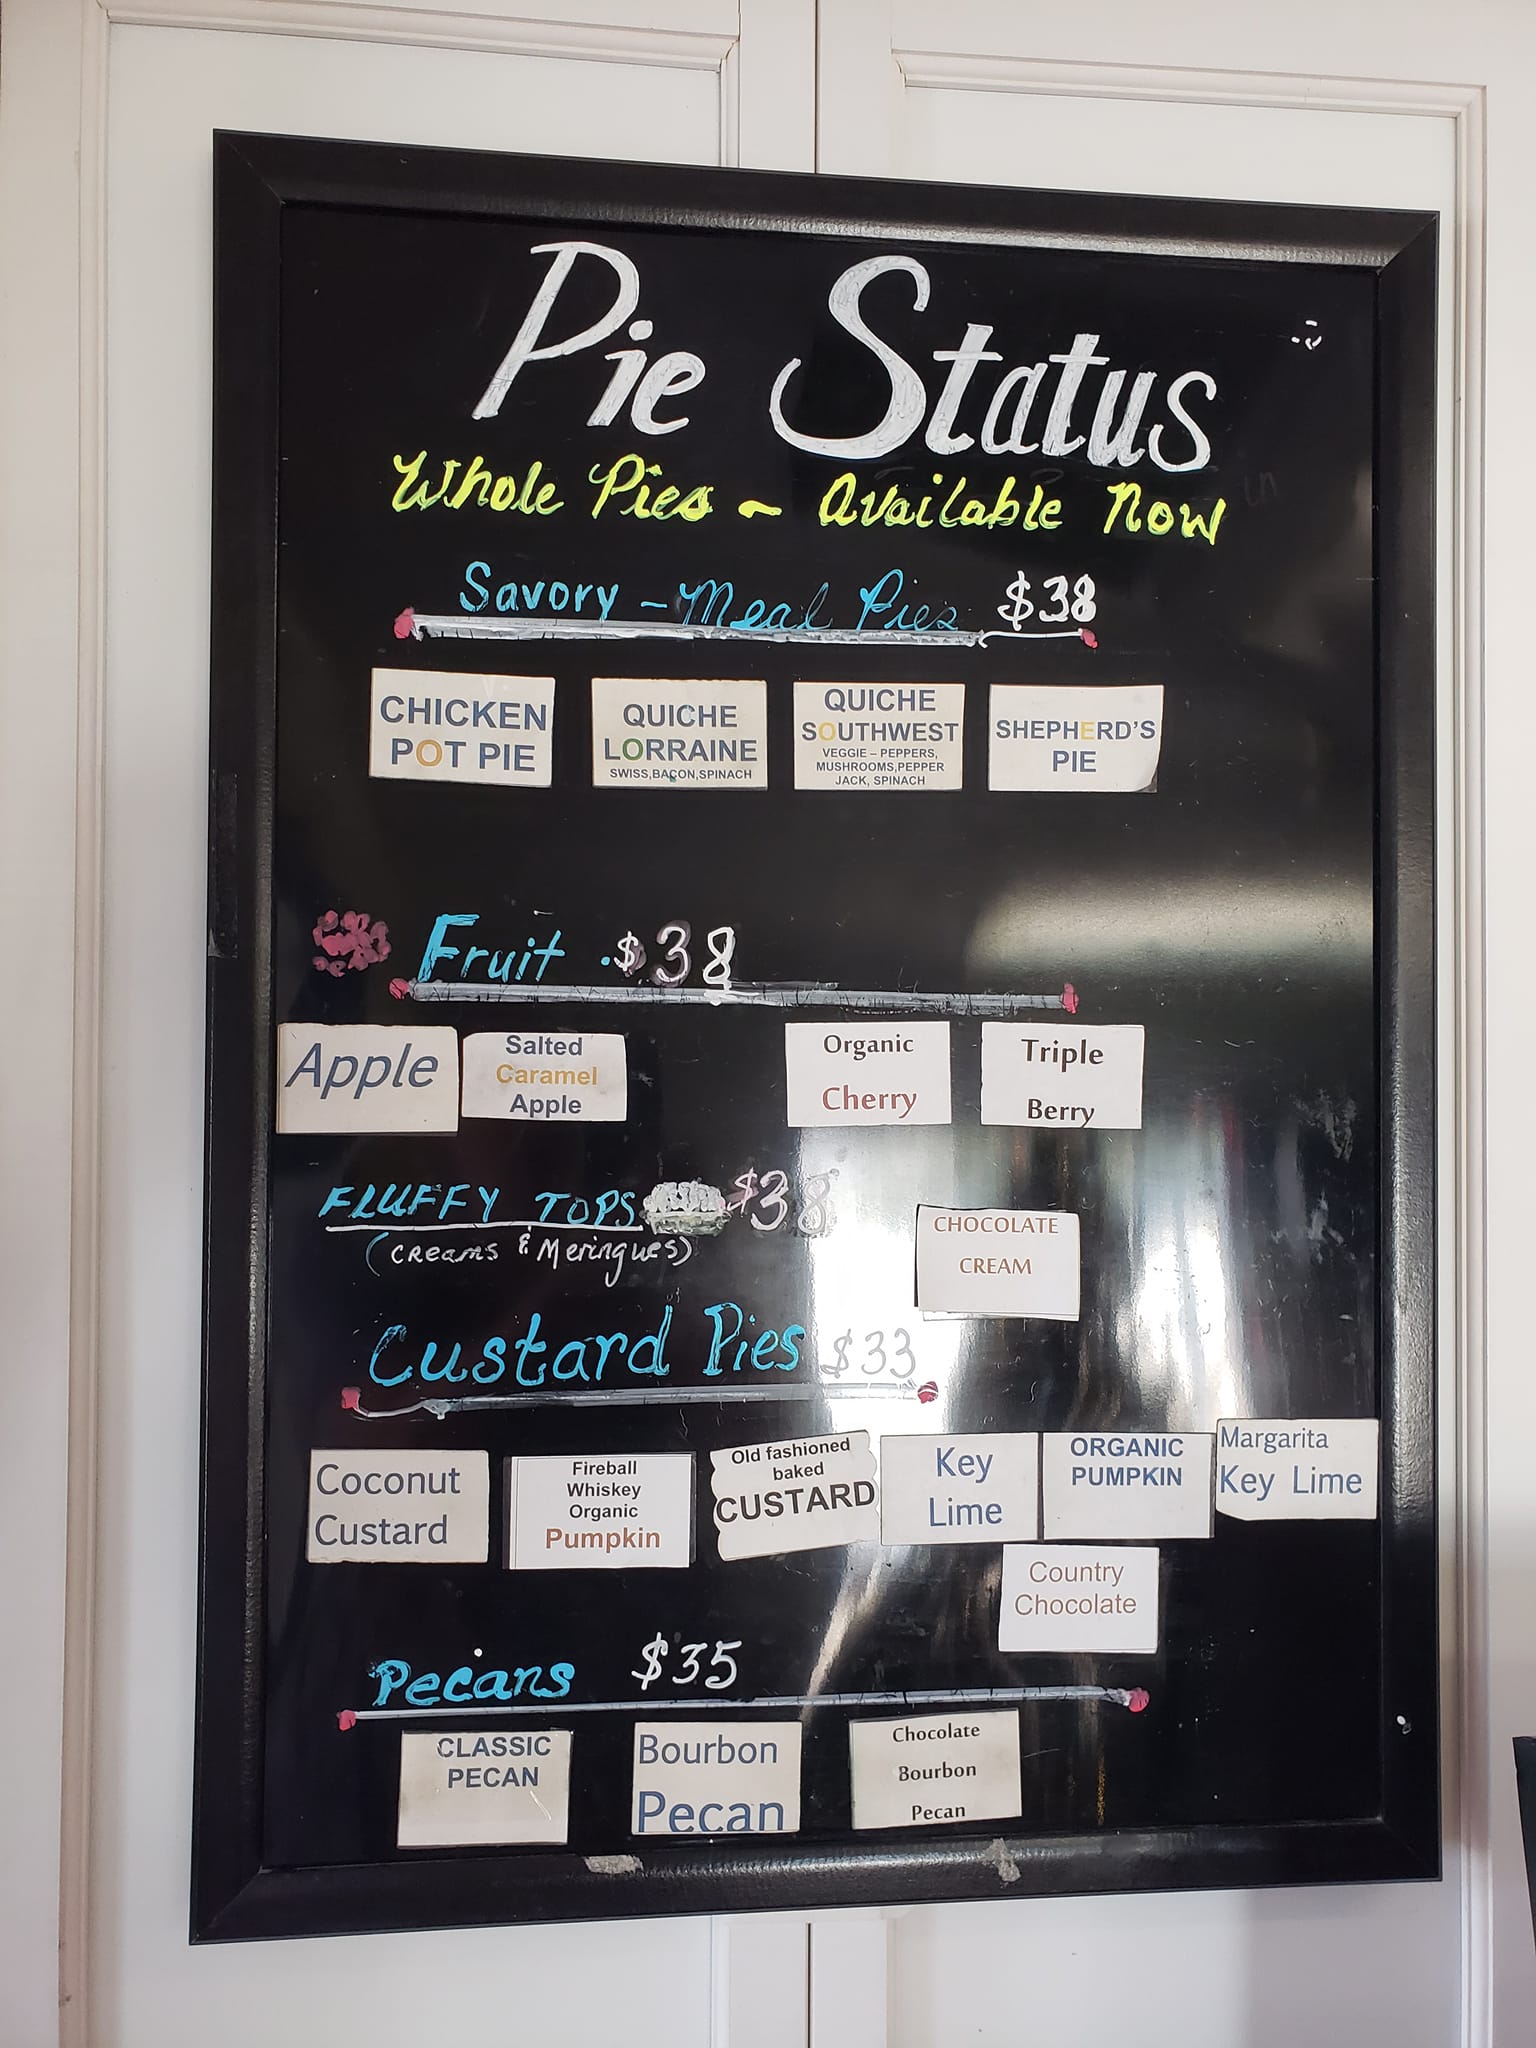 Pie Status
Whole Pies ~ Available Now
Savory - Meal Pies $38
CHICKEN
POT PIE
QUICHE
LORRAINE
SWISS,BACON,SPINACH
QUICHE
SOUTHWEST
VEGGIE – PEPPERS,
MUSHROOMS,PEPPER
JACK, SPINACH
SHEPHERD'S
PIE
Fruit $38
Apple
Salted
Caramel
Apple
Organic
Cherry
Triple
Berry
FLUFFY TOPS $38
(Creams & Meringues)
CHOCOLATE
CREAM
Custard Pies $33
Coconut
Custard
Fireball
Whiskey
Organic
Pumpkin
Old fashioned
baked
CUSTARD
Key
Lime
ORGANIC
PUMPKIN
Margarita
Key Lime
Country
Chocolate
Pecans $35
CLASSIC
PECAN
Bourbon
Pecan
Chocolate
Bourbon
Pecan